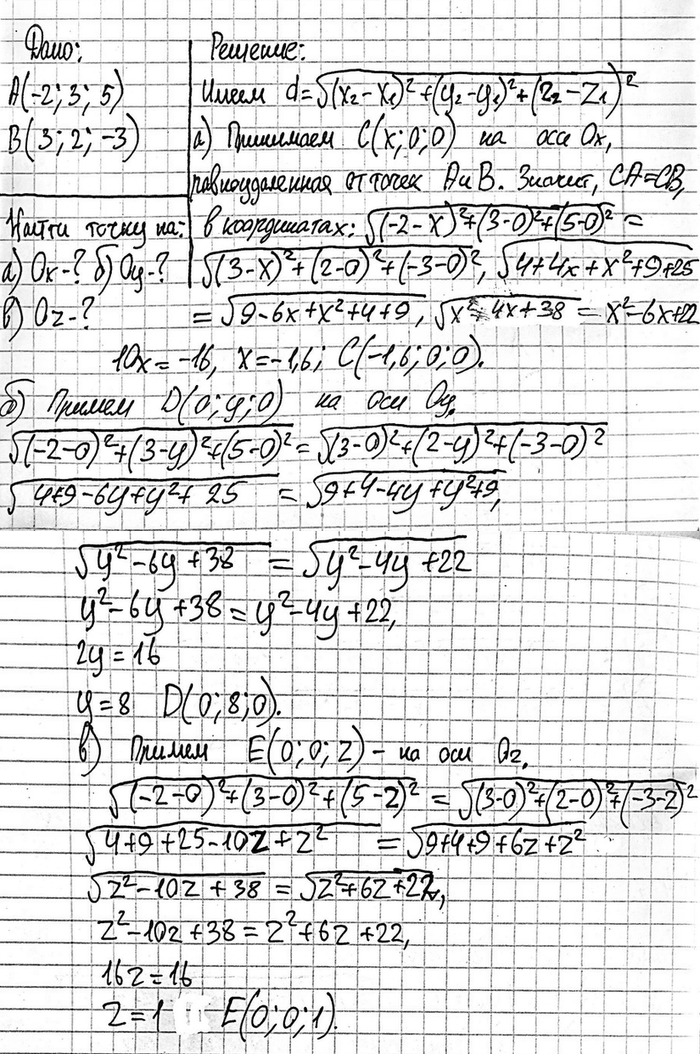 Дано:
А(-2; 3; 5)
В(3; 2; -3)
Найти точку на:
а) Ox-? б) Oy-?
в) Oz-?
Решение:
Имеем d=√(x₂-x₁)²+(y₂-y₁)²+(z₂-z₁)²
а) Принимаем C(x;0;0) на оси Ox,
равноудаленная от точек А и В. Значит, CA=CB,
в координатах: √(-2-x)²+(3-0)²+(5-0)² =
√(3-x)²+(2-0)²+(-3-0)², √4+4x+x²+9+25
= √9-6x+x²+4+9, √x²+4x+38 = x²-6x+22
10x=-16, x=-1,6; C(-1,6; 0; 0).
б) Примем D(0; y; 0) на оси Oy.
√(-2-0)²+(3-y)²+(5-0)² = √(3-0)²+(2-y)²+(-3-0)²
√4+9-6y+y²+25 = √9+4-4y+y²+9,
√y²-6y+38 = √y²-4y+22
y²-6y+38 = y²-4y+22,
2y=16
y=8 D(0; 8; 0).
в) Примем E(0; 0; z) - на оси Oz.
√(-2-0)²+(3-0)²+(5-z)² = √(3-0)²+(2-0)²+(-3-z)²
√4+9+25-10z+z² = √9+4+9+6z+z²
√z²-10z+38 = √z²+6z+22,
z²-10z+38 = z²+6z+22,
16z=16
z=1 E(0; 0; 1).